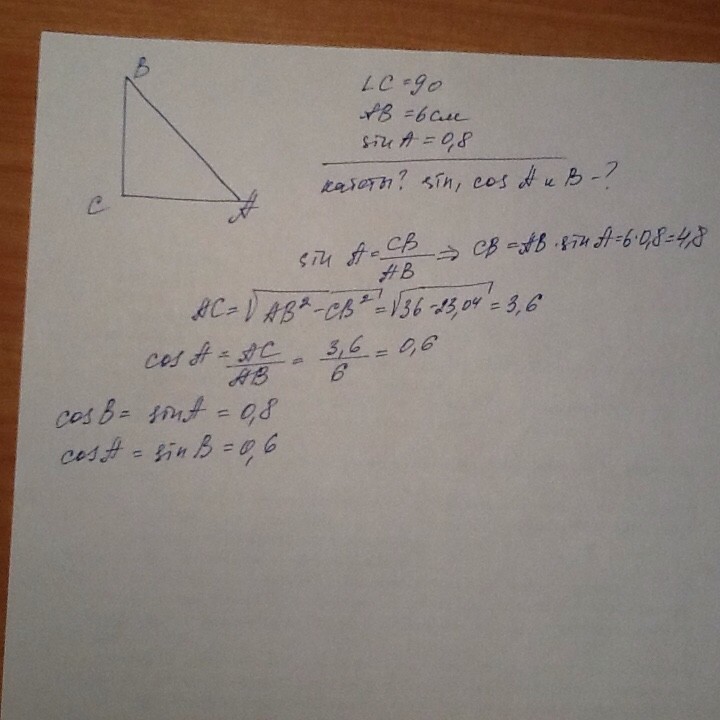 B
C
A
∠C = 90
AB = 6см
sin A = 0,8
катеты? sin, cos A и B - ?
sin A = CB/AB ⇒ CB = AB · sin A = 6 · 0,8 = 4,8
AC = √(AB² - CB²) = √(36 - 23,04) = 3,6
cos A = AC/AB = 3,6/6 = 0,6
cos B = sin A = 0,8
cos A = sin B = 0,6